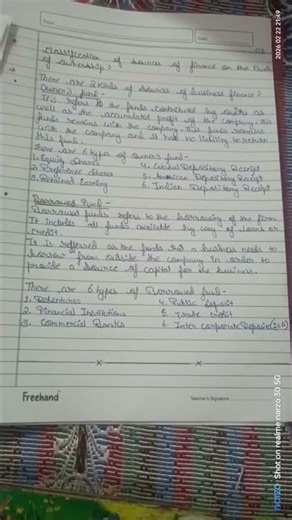 Topic
Date
03
classification of sources of finance on the Basis
of ownership?
There are 2 kinds of sources of business finance?
Owner's fund -
It is refers to the funds contributed by owners as
well as the accumulated profit of the company, this
funds remains with the company. This funds remains
with the company and it has no liability to return
this fund.
There are 6 types of owner's fund -
1. Equity Shares 4. Global Depository Receipt
2. Preference Share 5. American Depository Receipt
3. Retained Earning 6. Indian Depository Receipt
Borrowed Fund -
Borrowed funds refers to the borrowing of the firm
It includes all funds available by way of loans or
credit.
It is referred as the funds that a business needs to
borrow from outside the company in order to
provide a source of capital for the business.
There are 6 types of Borrowed fund -
1. Debentures 4. Public Deposit
2. Financial Institutions 5. Trade credit
3. Commercial Banks 6. Inter corporate Deposit (ICD)
x x
Freehand
Teacher's Signature
Shot on realme narzo 30 5G
2026.02.22 21:49